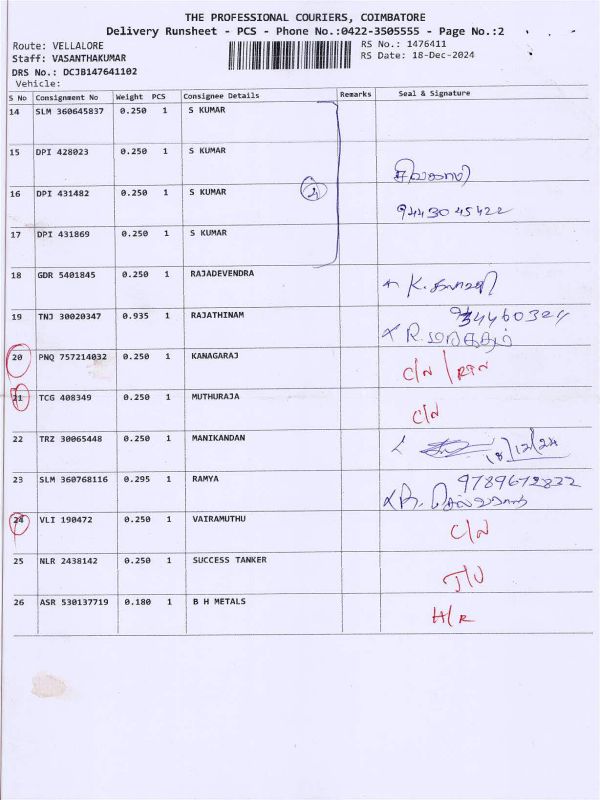 THE PROFESSIONAL COURIERS, COIMBATORE
Delivery Runsheet - PCS - Phone No.:0422-3505555 - Page No.:2
Route: VELLALORE
RS No.: 1476411
Staff: VASANTHAKUMAR
RS Date: 18-Dec-2024
DRS No.: DCJB147641102
Vehicle:
S No Consignment No Weight PCS Consignee Details Remarks Seal & Signature
14 SLM 360645837 0.250 1 S KUMAR
15 DPI 428023 0.250 1 S KUMAR
சிவகாமி
16 DPI 431482 0.250 1 S KUMAR 4
9443045422
17 DPI 431869 0.250 1 S KUMAR
18 GDR 5401845 0.250 1 RAJADEVENDRA
K.
19 TNJ 30020347 0.935 1 RAJATHINAM
R.
20 PNQ 757214032 0.250 1 KANAGARAJ C/N / RTN
21 TCG 408349 0.250 1 MUTHURAJA C/N
22 TRZ 30065448 0.250 1 MANIKANDAN 18/12/24
23 SLM 360768116 0.295 1 RAMYA 9789672822
24 VLI 190472 0.250 1 VAIRAMUTHU C/N
25 NLR 2438142 0.250 1 SUCCESS TANKER
26 ASR 530137719 0.180 1 B H METALS H/R